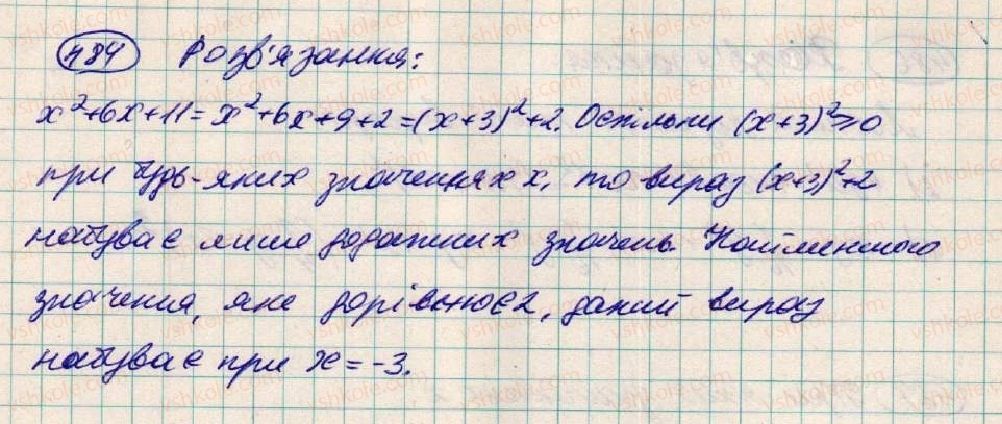 484 Розв'язання:
x²+6x+11=x²+6x+9+2=(x+3)²+2. Оскільки (x+3)²≥0
при будь-яких значеннях x, то вираз (x+3)²+2
набуває лише додатних значень. Найменшого
значення, яке дорівнює 2, даний вираз
набуває при x=-3.